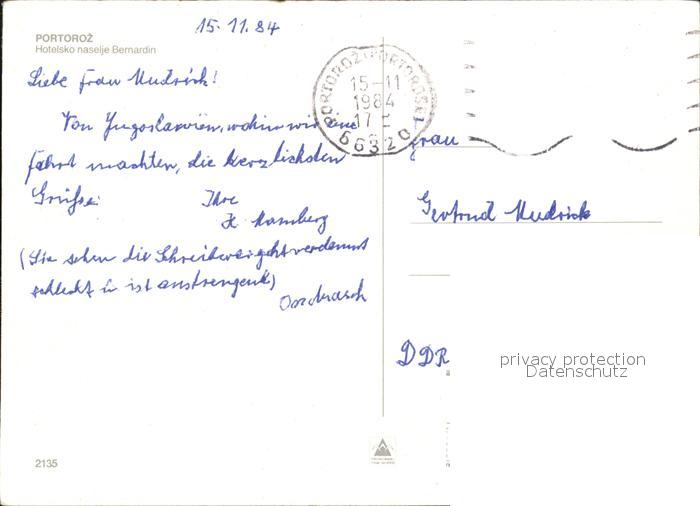 15.11.84
PORTOROŽ
Hotelsko naselje Bernardin
Liebe Frau Mudrick!
Von Jugoslawien, wohin wir eine
Fahrt machten, die herzlichsten
Grüsse
Ihre
H. Mamberg
(Sie sehen die Schreibweise geht verdammt
schlecht u ist anstrengend)
PORTOROŽ-PORTOROSE
15-11
1984
17
66320
Frau
Gertrud Mudrick
DDR
privacy protection
Datenschutz
2135